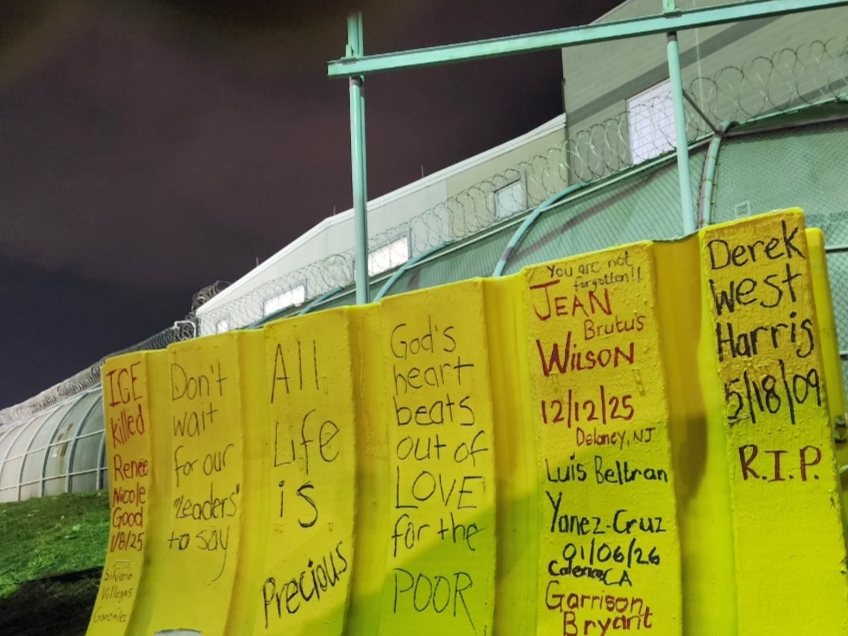 ICE
killed
Renee
Nicole
Good
1/8/25
Silverio
Villegas
González
Don't
wait
for our
"leaders"
to say
All
Life
is
Precious
God's
heart
beats
out of
LOVE
for the
POOR
You are not
forgotten!!
JEAN
Brutus
WILSON
12/12/25
Delaney, NJ
Luis Beltran
Yanez-Cruz
01/06/26
CA
Garrison
Bryant
Derek
West
Harris
5/18/09
R.I.P.